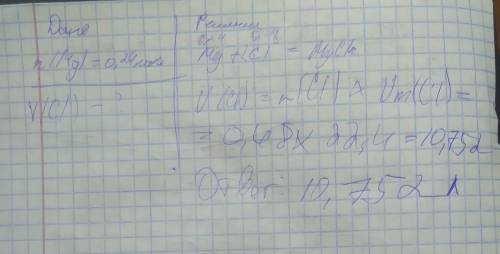 Дано
n(Mg)=0,24моль
V(Cl) - ?
Решение
Mg + Cl = MgCl₂
V(Cl) = n(Cl) × Vm(Cl) =
= 0,48 × 22,4 = 10,752
Ответ: 10,752 л